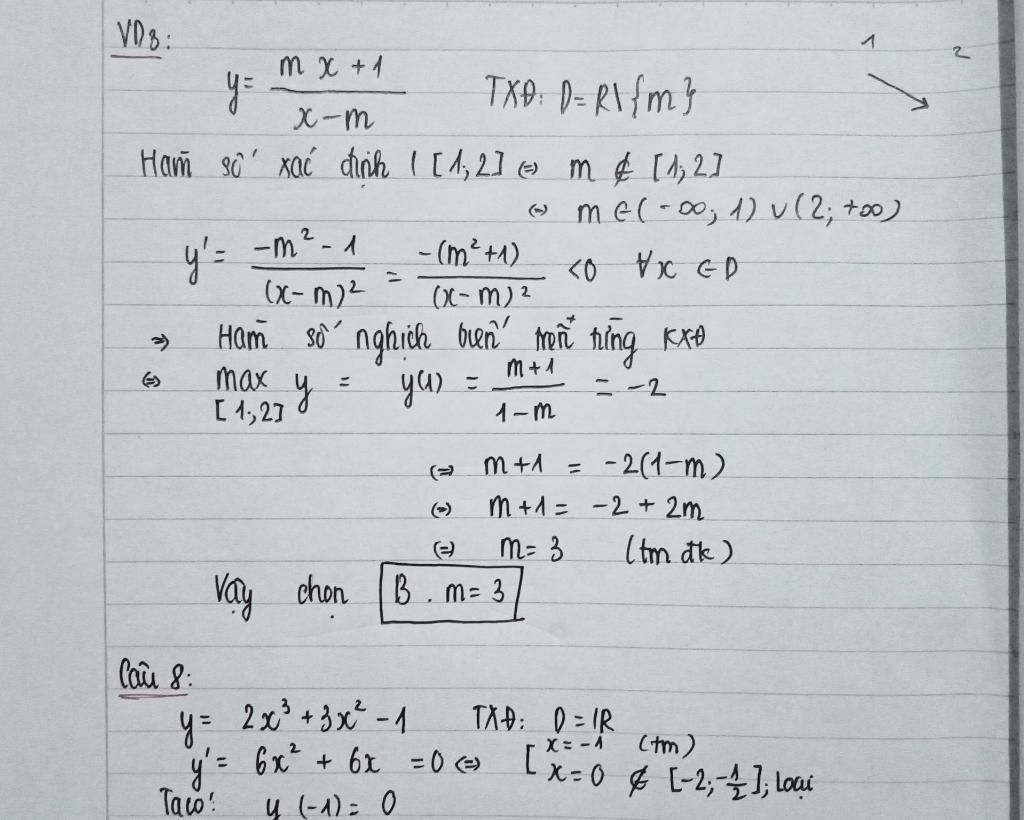 VD8:
1 2
y = \frac{mx+1}{x-m} TXĐ: D = R\{m}
Hàm số xác định / [1;2] ⇔ m ∉ [1;2]
⇔ m ∈ (-∞; 1) ∪ (2; +∞)
y' = \frac{-m² - 1}{(x-m)²} = \frac{-(m²+1)}{(x-m)²} < 0 ∀x ∈ D
⇒ Hàm số nghịch biến trên từng KXĐ
⇔ max_{[1;2]} y = y(1) = \frac{m+1}{1-m} = -2
⇔ m+1 = -2(1-m)
⇔ m+1 = -2 + 2m
⇔ m = 3 (tm đk)
Vậy chọn B. m = 3
Câu 8:
y = 2x³ + 3x² - 1 TXĐ: D = ℝ
y' = 6x² + 6x = 0 ⇔ [ x = -1 (tm)
x = 0 ∉ [-2; -\frac{1}{2}]; loại
Ta có: y(-1) = 0